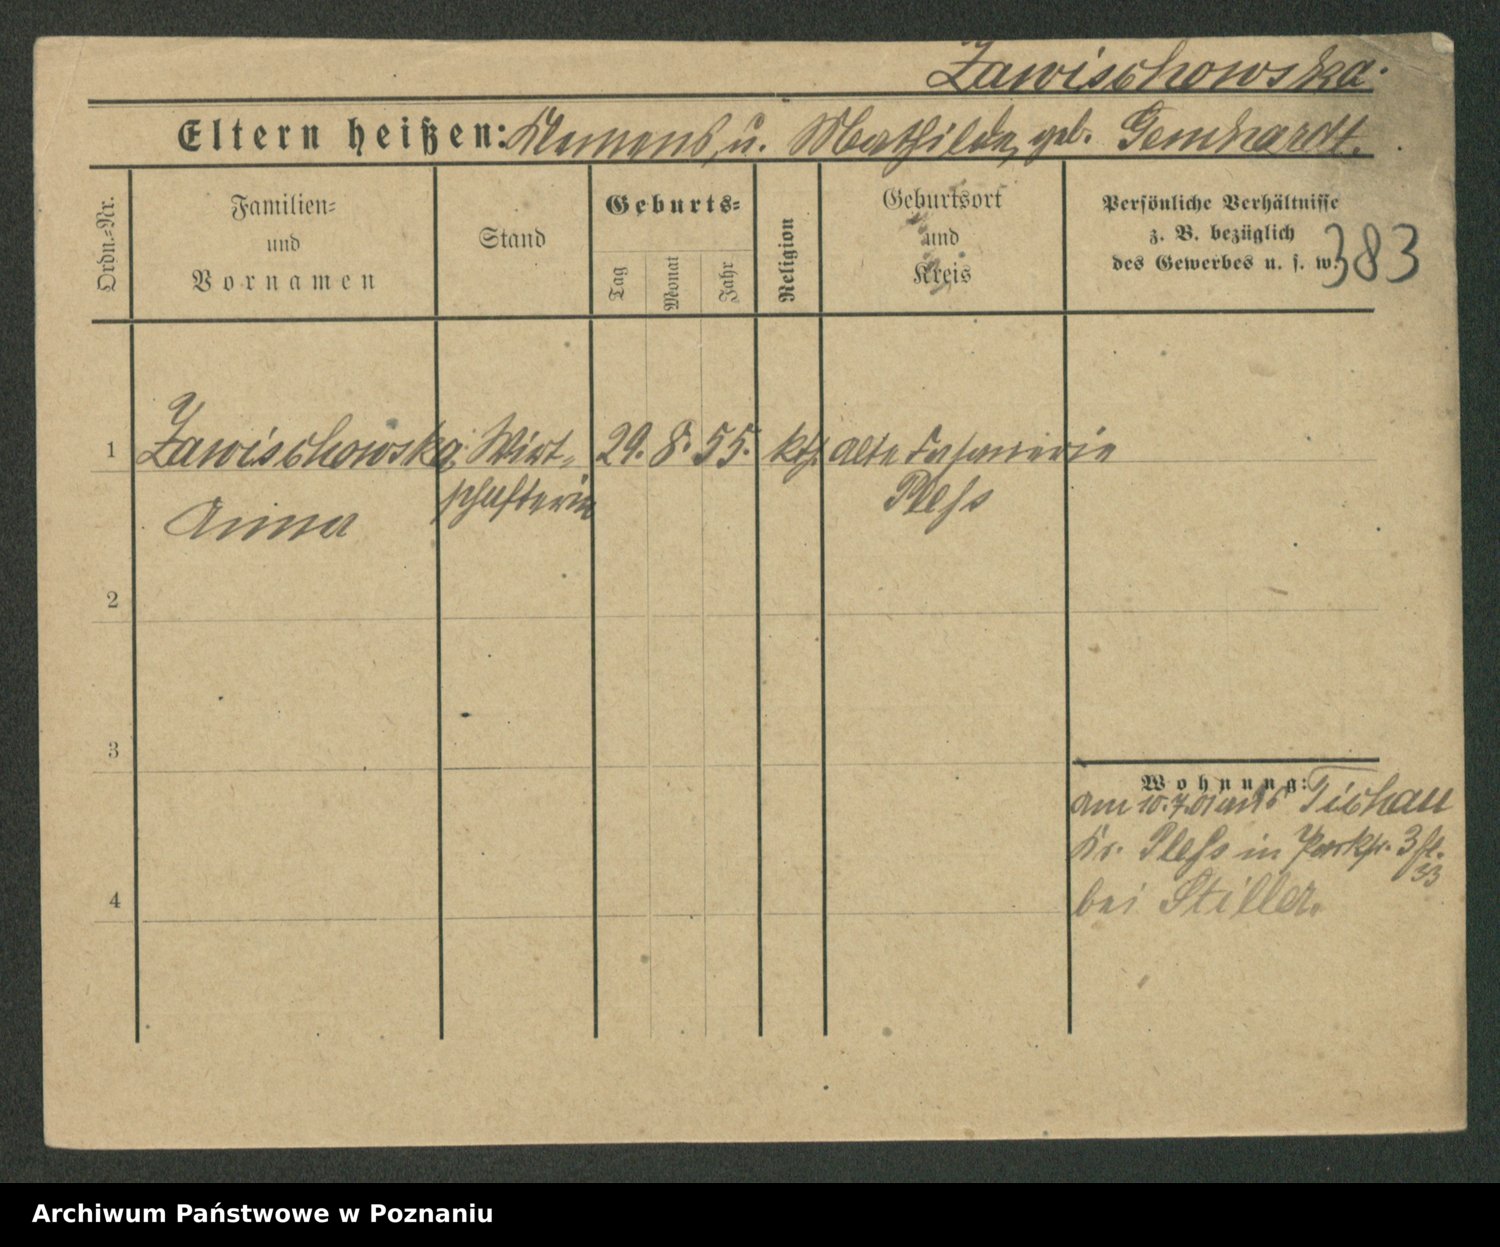 Zawischowska.
Eltern heißen: Klemens, u. Mathilde, geb. Gemhardt.
Ordn.-Nr.
Familien-
und
Vornamen
Stand
Geburts-
Tag
Monat
Jahr
Religion
Geburtsort
und
Kreis
Persönliche Verhältnisse
z. B. bezüglich
des Gewerbes u. s. w.
383
1 Zawischowska, Wirt- 29. 8. 55. kth. alte Fasanerie
Anna schafterin Pleß
2
3
4
Wohnung:
am 10.7.01 aus Tichau
Kr. Pleß in Parkstr. 3
bei Stiller.
Archiwum Państwowe w Poznaniu